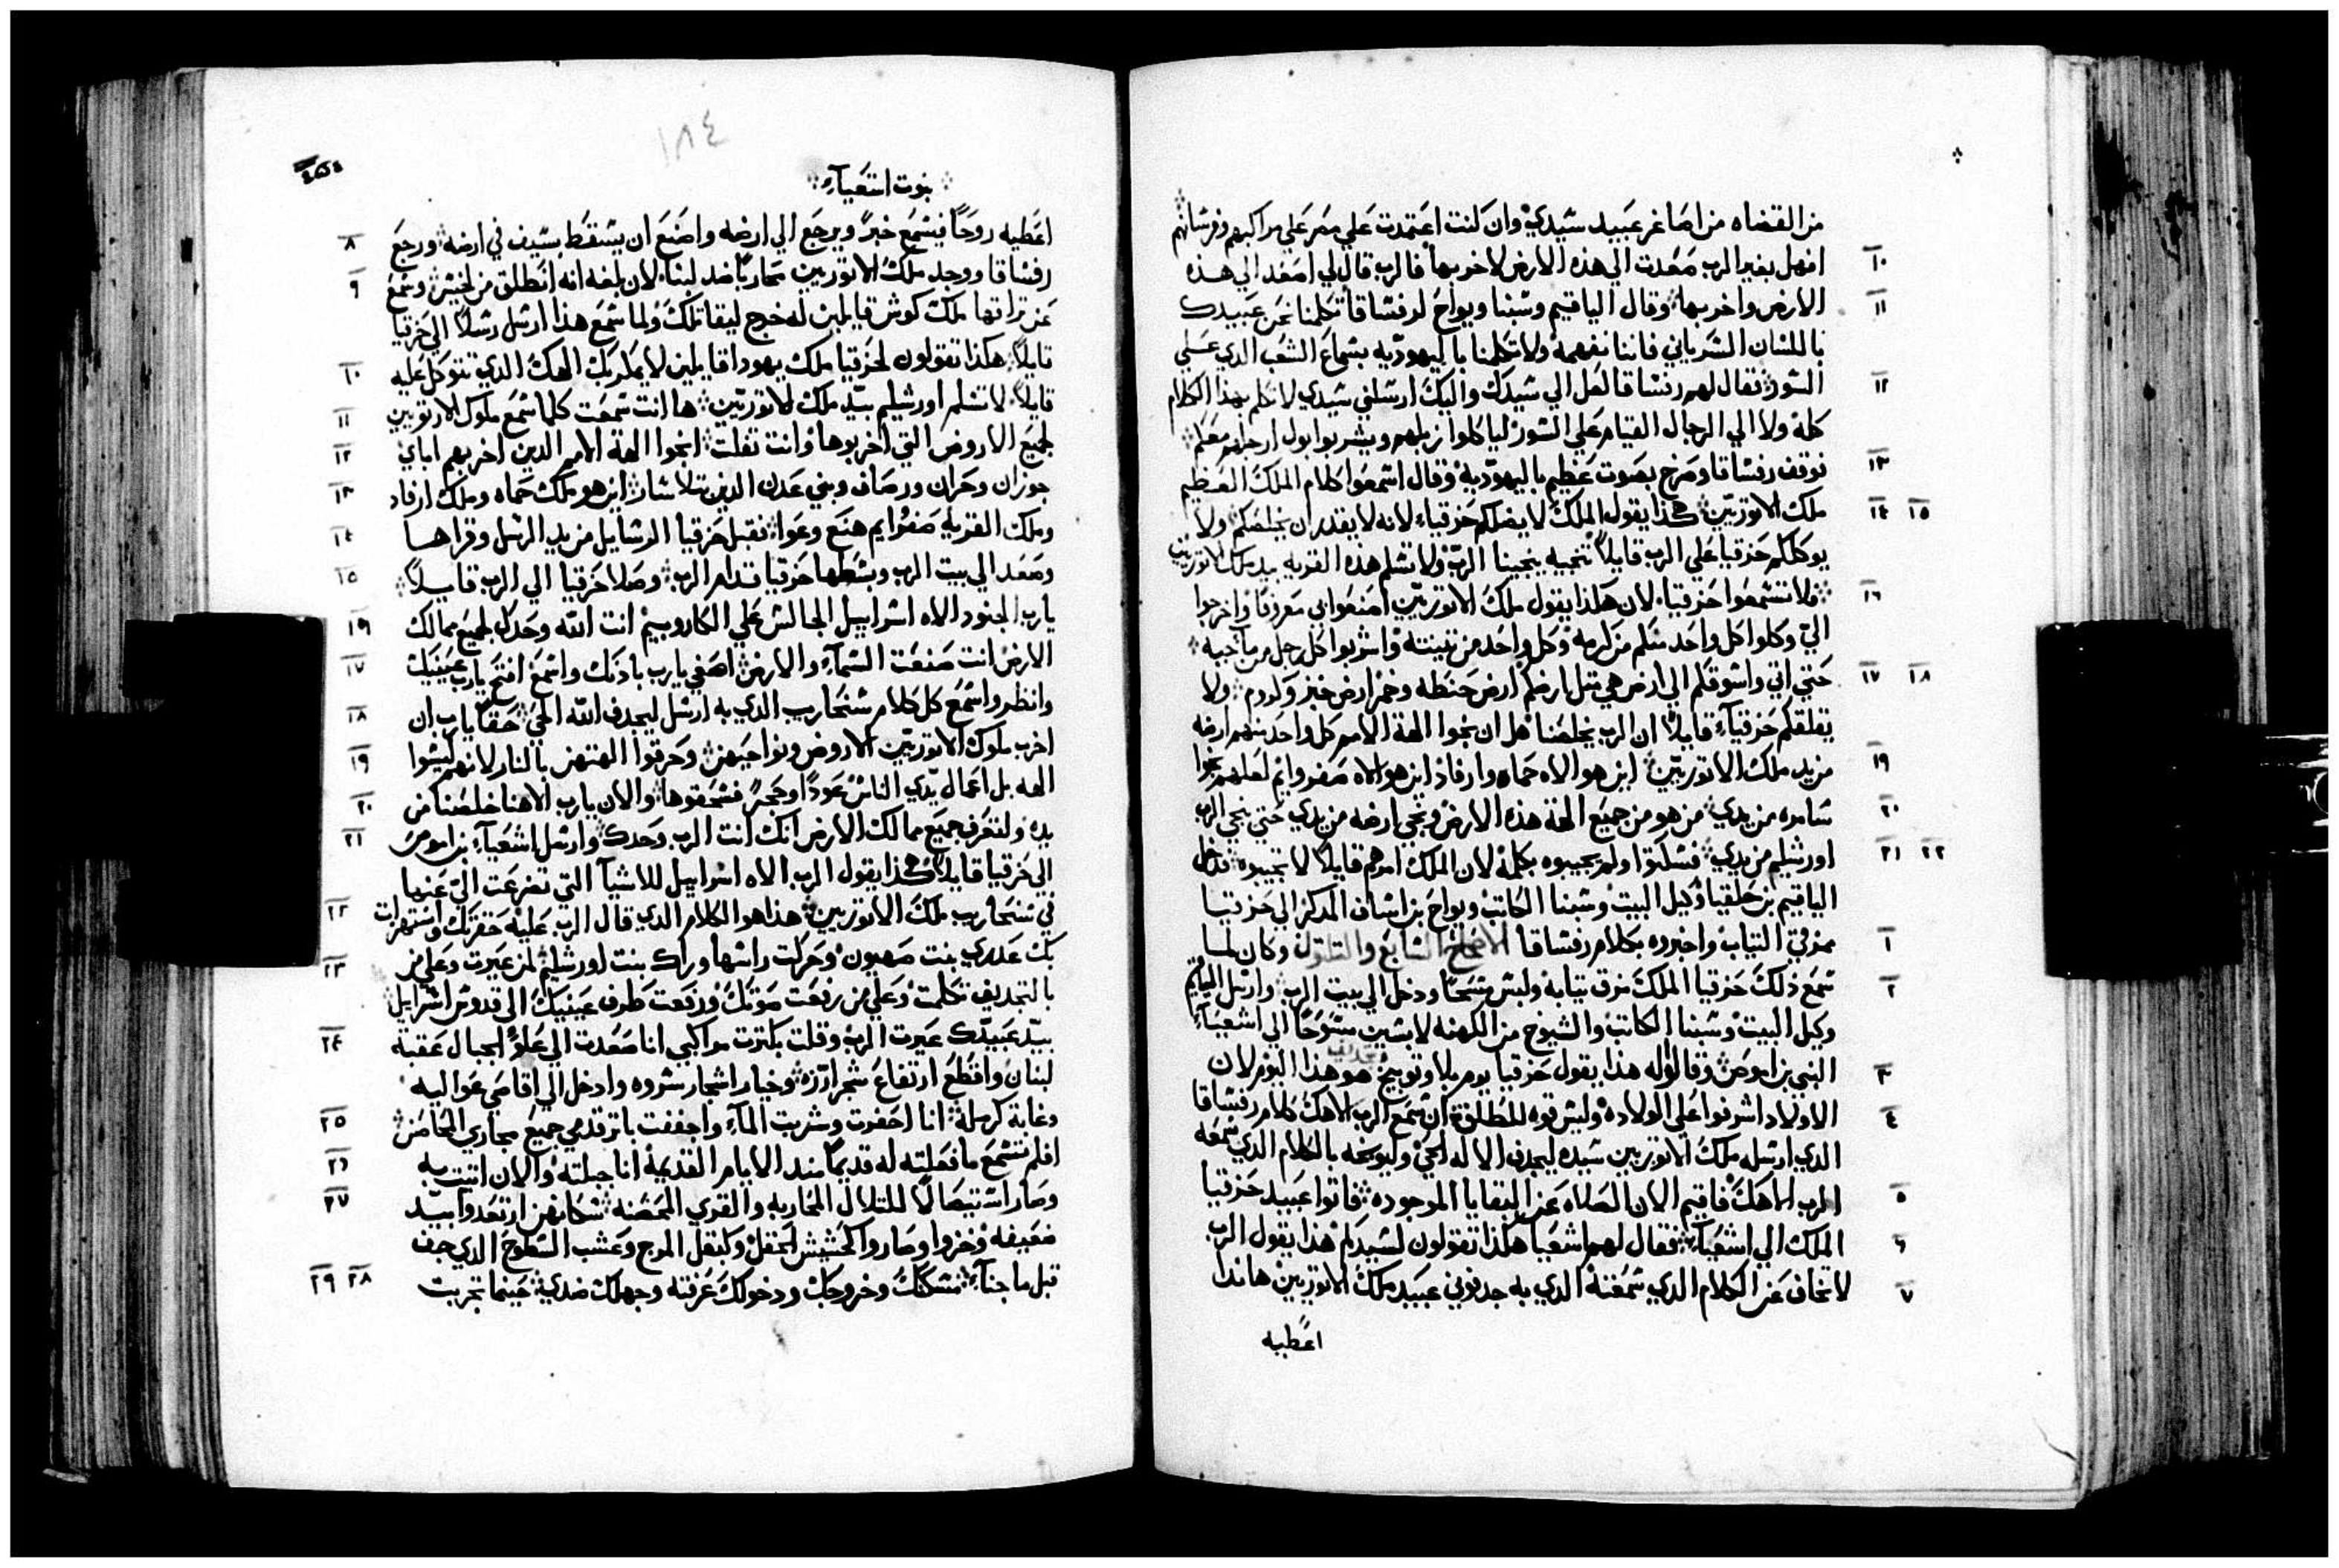 من القضاه من اصاغر عبيد سيدي وان كنت اعتمدت علي مصر علي مراكبهم وفرسانهم
١٠ افهل بغير الرب صعدت الي هذه الارض لاخربها فالرب قال لي اصعد الي هذه
١١ الارض واخربها وقال الياقيم وشبنا ويواح لرفشاقا تكلمنا نحن عبيدك
باللسان السرياني فاننا نفهمه ولا تكلمنا باليهوديه بسماع الشعب الدي علي
١٢ السور فقال لهم رفشاقا لعل الي سيدك واليك ارسلني سيدي لاتكلم بهدا الكلام
كله ولا الي الرجال القيام علي السور لياكلوا زبلهم ويشربوا بول ارجلهم معكم
١٣ فوقف رفشاقا وصرخ بصوت عظيم باليهوديه وقال اسمعوا كلام الملك العظيم
١٤ ١٥ ملك الاتوريين هكدا يقول الملك لا يضلكم حزقيا لانه لا يقدر ان يخلصكم ولا
يوكلكم حزقيا علي الرب قايلا تنجيه ينجينا الرب ولا تسلم هذه القريه بيد ملك الاتوريين
١٦ فلا تسمعوا حزقيا لان هكدا يقول ملك الاتوريين اصنعوا بي معرفا واخرجوا
الي وكلوا كل واحد منكم من كرمه وكل واحد من تينته واشربوا كل رجل من ما جبه
١٧ ١٨ حتي اتي واسوقكم الي ارض هي متل ارضكم ارض حنطه وخمر ارض خبز وكروم ولا
يقلقكم حزقيا قايلا ان الرب يخلصنا هل ان نجوا الهة الامم كل واحد منهم ارضه
١٩ من يد ملك الاتوريين اين هو الاه حماه وارفاد اين هو الاه صفروايم لعلهم نجوا
٢٠ سامره من يدي من هو من جميع الهة هذه الارض ونجي ارضه من يدي حتي ينجي الرب
٢١ ٢٢ اورشليم من يدي فسكتوا ولم يجيبوه بكلمة لان الملك امرهم قايلا لا تجيبوه فدخل
الياقيم بن حلقيا وكيل البيت وشبنا الكاتب ويواح بن اساف المدكر الي حزقيا
١ ممزقي التياب واخبروه بكلام رفشاقا الاصحاح السابع والتلتون وكان لما
٢ سمع ذلك حزقيا الملك مزق تيابه ولبس مسحا ودخل الي بيت الرب وارسل الياقيم
وكيل البيت وشبنا الكاتب والشيوخ من الكهنه لابسين مسوحا الي اشعيا
٣ النبي بن اموص وقالوا له هدا يقول حزقيا يوم بلا وتوبيخ وتجديف هو هذا اليوم لان
٤ الاولاد اشرفوا علي الولاده وليس قوه للطلقة ان سمع الرب الاهك كلام رفشاقا
الدي ارسله ملك الاتوريين سيده ليجدف الاله الحي وليوبخه بالكلام الدي سمعه
٥ الرب الاهك فاقيم الان الصلاه عن البقايا الموجوده فاتوا عبيد حزقيا
٦ الملك الي اشعيا فقال لهم اشعيا هكدا تقولون لسيدكم هدا يقول الرب
٧ لا تخاف عن الكلام الدي سمعته الدي به جدفوني عبيد ملك الاتوريين هاندا
اعطيه
١٨٤
نبوت اشعياء
اعطيه روحا فيسمع خبرا ويرجع الي ارضه واصنع ان يسقط بسيف في ارضه ورجع ٨
رفشاقا ووجد ملك الاتوريين محاربا ضد لبنا لان بلغه انه انطلق من لخيش وسمع ٩
عن تراتها ملك كوش قايلين انه خرج ليقاتلك ولما سمع هذا ارسل رسلا الي حزقيا
قايلا هكذا تقولون لحزقيا ملك يهودا قايلين لا يمكر بك الهك الدي تتوكل عليه ١٠
قايلا لا تسلم اورشليم بيد ملك الاتوريين ها انت سمعت كلما سمع ملوك الاتوريين ١١
لجميع الاروض التي اخربوها وانت تفلت انجوا الهة الامم الدين اخربهم اباي ١٢
جوزان وحران ورصاف وبني عدن الدين بتلاشار اين هو ملك حماه وملك ارفاد ١٣
وملك القريه صفروايم هنع وعوا فقبل حزقيا الرسايل من يد الرسل وقراها ١٤
وصعد الي بيت الرب وبسطها حزقيا قدام الرب وصلا حزقيا الي الرب قايلا ١٥
يارب الجنود الاه اسراييل الجالس علي الكاروبيم انت الله وحدك لجميع ممالك ١٦
الارض انت صنعت السماء والارض اصغي يارب بادنك واسمع افتح يارب عينيك ١٧
وانظر واسمع كل كلام سنحاريب الدي به ارسل ليجدف الله الحي حقا يارب ان ١٨
اخرب ملوك الاتوريين الاروض ونواحيهن وحرقوا الهتهن بالنار لانهم ليسوا ١٩
الهه بل اعمال يدي الناس عودا وحجرا فسحقوها والان يارب الاهنا خلصنا من ٢٠
يده ولتعرف جميع ممالك الارض انك انت الرب وحدك وارسل اشعياء بن اموص ٢١
الي حزقيا قايلا هكذا يقول الرب الاه اسراييل للاشيا التي تضرعت الي عنها
في سنحاريب ملك الاتوريين هذا هو الكلام الدي قال الرب عليه حقرتك واستهزات ٢٢
بك عدري بنت صهيون وحركت راسها وراك بنت اورشليم لمن عيرت وعلي من ٢٣
بالتجديف تكلمت وعلي من رفعت صوتك ورفعت طرف عينيك الي قدوس اسراييل
بيد عبيدك عيرت الرب وقلت بكترت مراكبي انا صعدت الي علو الجبال عقبة ٢٤
لبنان واقطع ارتفاع شجر ارزه وخيار اشجار سروه وادخل الي اقاصي عواليه
وغابة كرمله انا احفرت وشربت الماء واجففت باتر قدمي جميع مجاري الحامض ٢٥
افلم تسمع ما فعلته له قديما مند الايام القديمة انا جبلته والان اتيت به ٢٦
وصار استيصالا للتلال المحاربه والقري المحصنه سكانهن ارتعدوا بيد ٢٧
ضعيفه وخزوا وصاروا كحشيش الحقل وكبقل المرج وعشب السطوح الدي جف
قبل ما جناء مسكنك وخروجك ودخولك عرفته وجهلك ضدي حينما تجربت ٢٨ ٢٩